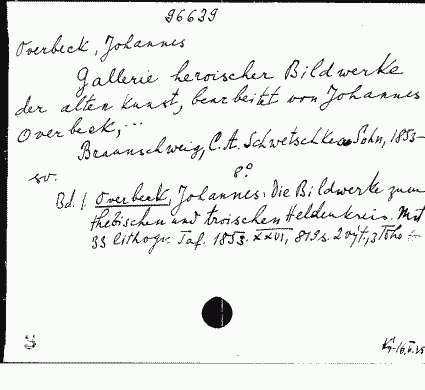 96639
Overbeck, Johannes
Gallerie heroischer Bildwerke
der alten Kunst, bearbeitet von Johannes
Overbeck, ...
Braunschweig, C. A. Schwetschke & Sohn, 1853-
sv. 8°
Bd. 1. Overbeck, Johannes: Die Bildwerke zum
thebischen und troischen Heldenkreis. Mit
33 lithogr. Taf. 1853. XXVI, 819 s.